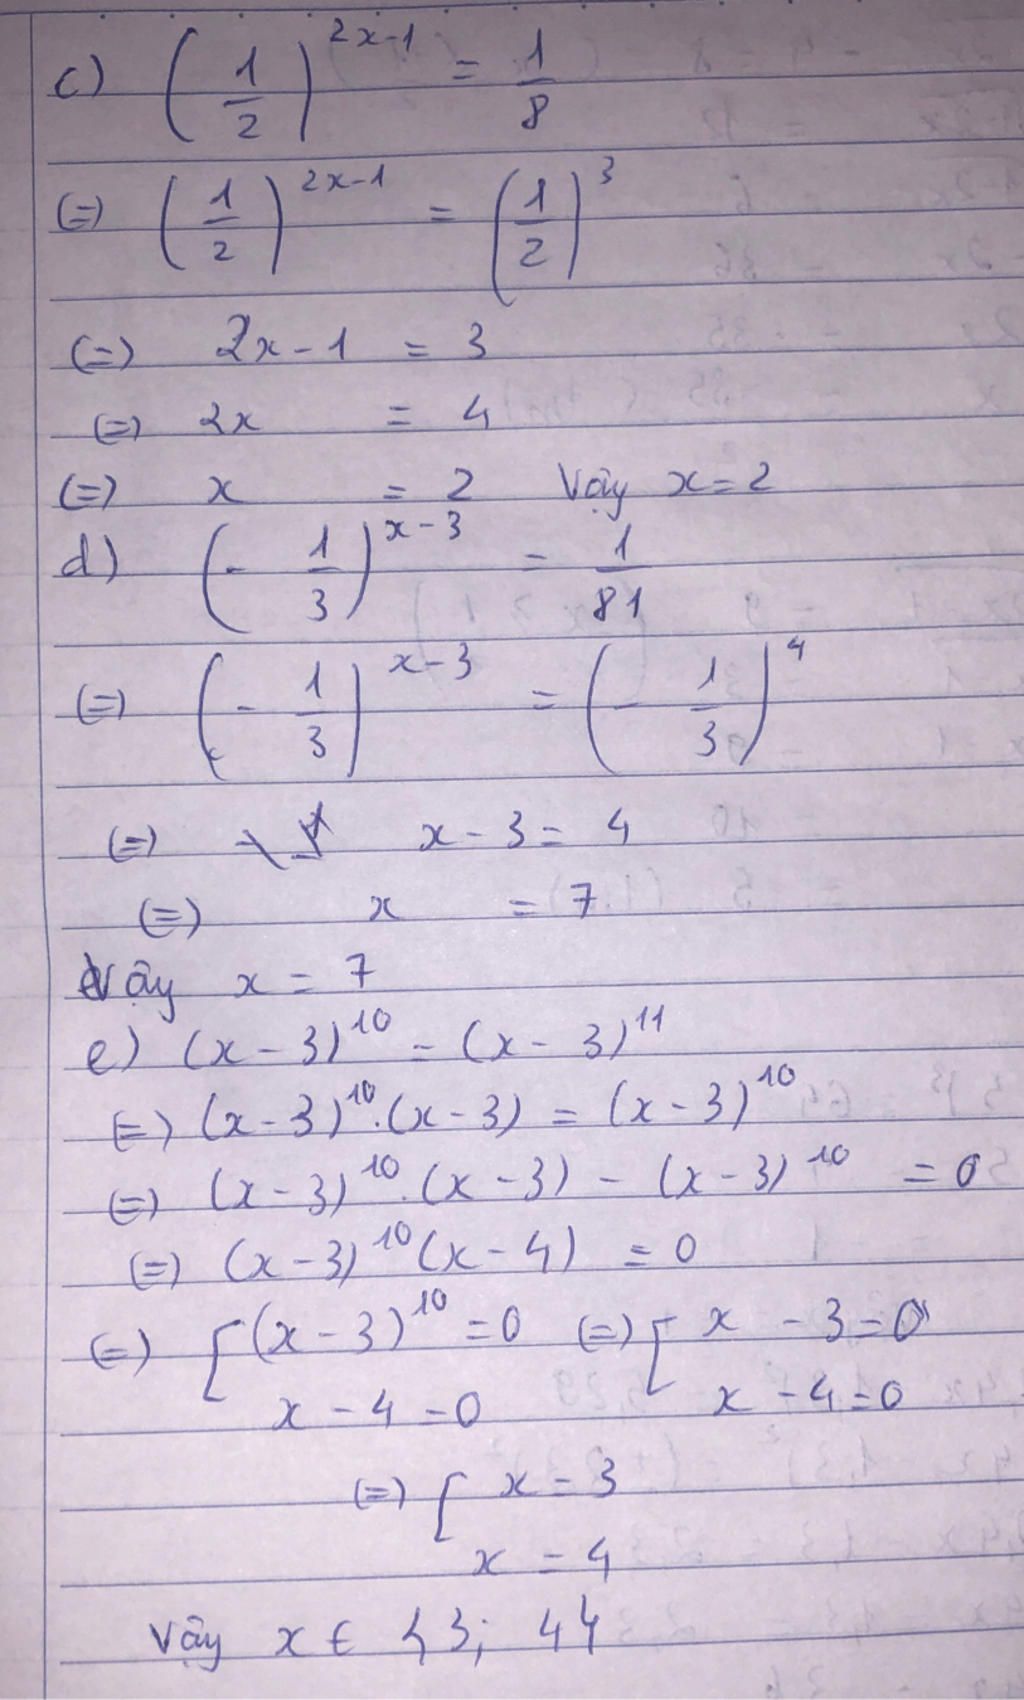 c) (1/2)^(2x-1) = 1/8
(=) (1/2)^(2x-1) = (1/2)^3
(=) 2x-1 = 3
(=) 2x = 4
(=) x = 2 Vậy x=2
d) (-1/3)^(x-3) = 1/81
(=) (-1/3)^(x-3) = (-1/3)^4
(=) x-3 = 4
(=) x = 7
Vậy x = 7
e) (x-3)^10 = (x-3)^11
(=) (x-3)^10.(x-3) = (x-3)^10
(=) (x-3)^10.(x-3) - (x-3)^10 = 0
(=) (x-3)^10(x-4) = 0
(=) [(x-3)^10 = 0 (=) [x - 3 = 0
x - 4 = 0 x - 4 = 0
(=) [x = 3
x = 4
Vậy x ∈ {3; 4}